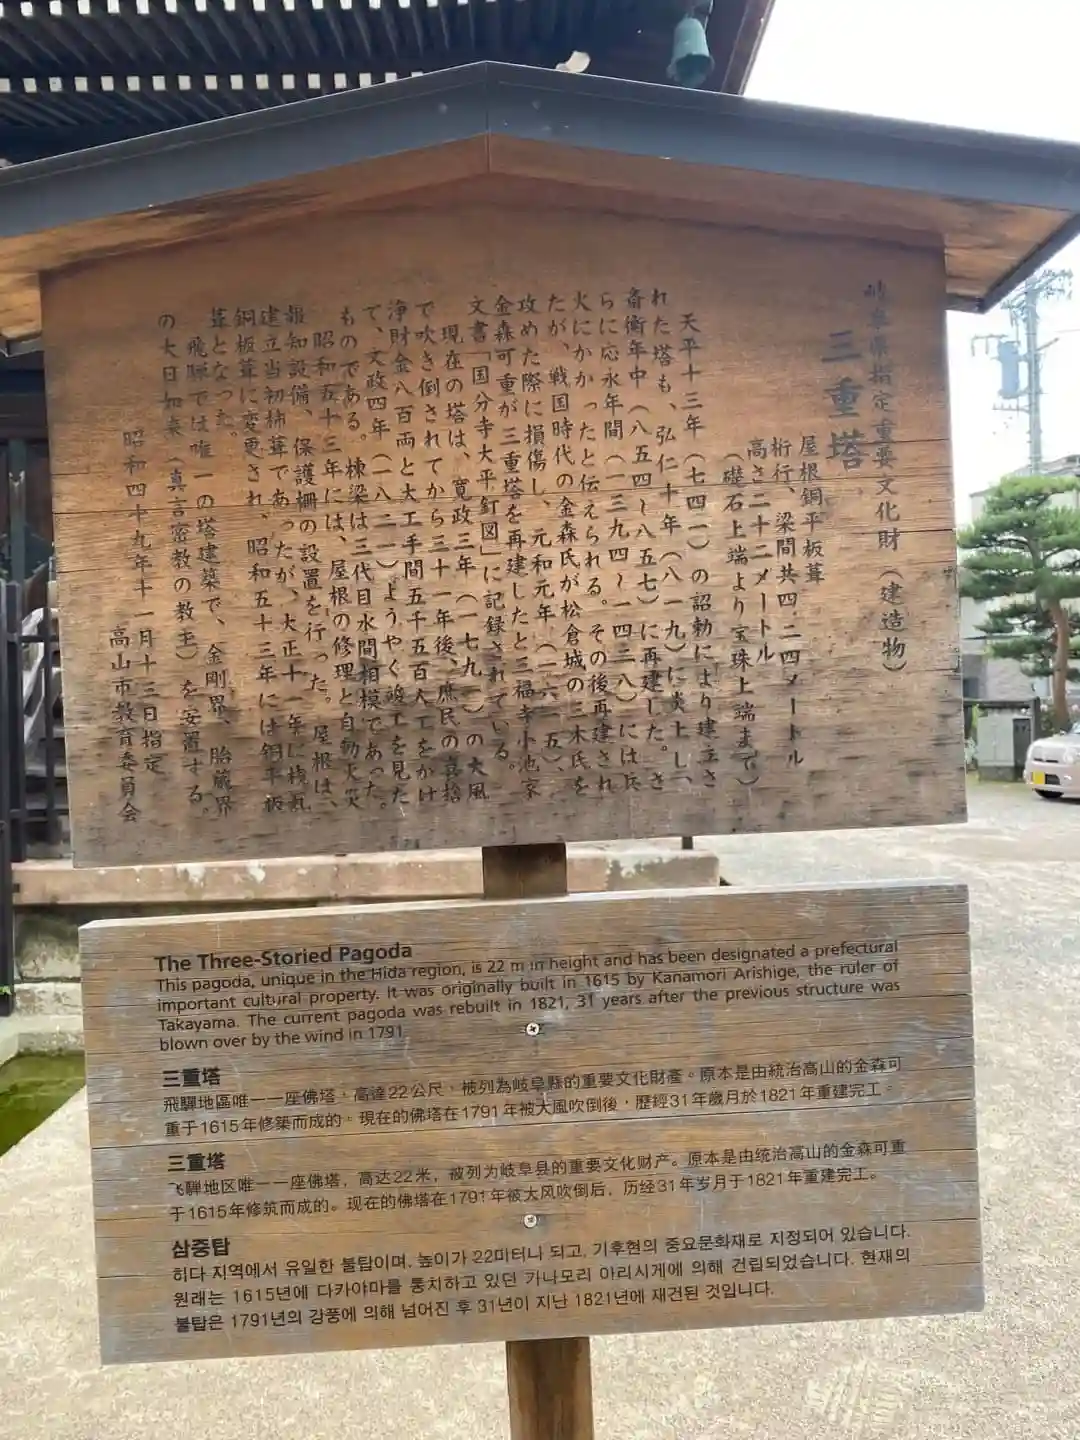 岐阜県指定重要文化財（建造物）
三重塔
屋根銅平板葺
桁行、梁間共四.二四メートル
高さ二十二メートル
（礎石上端より宝珠上端まで）
天平十三年（七四一）の詔勅により建立さ
れた塔も、弘仁十年（八一九）に炎上し、
斉衡年中（八五四～八五七）に再建した。さ
らに応永年間（一三九四～一四二八）には兵
火にかかったと伝えられる。その後再建され
たが、戦国時代の金森氏が松倉城の三木氏を
攻めた際に損傷し、元和元年（一六一五）、
金森可重が三重塔を再建したと三福寺小池家
文書「国分寺大平釘図」に記録されている。
現在の塔は、寛政三年（一七九一）の大風
で吹き倒されてから三十一年後、庶民の喜捨
浄財金八百両と大工手間五千五百人工をかけ
て、文政四年（一八二一）ようやく竣工を見た
ものである。棟梁は三代目水間相模であった。
昭和五十三年には、屋根の修理と自動火災
報知設備、保護柵の設置を行った。屋根は、
建立当初柿葺であったが、大正十一年に桟瓦
銅板葺に変更され、昭和五十三年には銅平板
葺となった。
飛騨では唯一の塔建築で、金剛界、胎蔵界
の大日如来（真言密教の教主）を安置する。
昭和四十九年十一月十三日指定
高山市教育委員会
The Three-Storied Pagoda
This pagoda, unique in the Hida region, is 22 m in height and has been designated a prefectural
important cultural property. It was originally built in 1615 by Kanamori Arishige, the ruler of
Takayama. The current pagoda was rebuilt in 1821, 31 years after the previous structure was
blown over by the wind in 1791.
三重塔
飛驒地區唯一一座佛塔，高達22公尺，被列為岐阜縣的重要文化財產。原本是由統治高山的金森可
重于1615年修築而成的。現在的佛塔在1791年被大風吹倒後，歷經31年歲月於1821年重建完工。
三重塔
飞騨地区唯一一座佛塔，高达22米，被列为岐阜县的重要文化财产。原本是由统治高山的金森可重
于1615年修筑而成的。现在的佛塔在1791年被大风吹倒后，历经31年岁月于1821年重建完工。
삼중탑
히다 지역에서 유일한 불탑이며, 높이가 22미터나 되고, 기후현의 중요문화재로 지정되어 있습니다.
원래는 1615년에 다카야마를 통치하고 있던 카나모리 아리시게에 의해 건립되었습니다. 현재의
불탑은 1791년의 강풍에 의해 넘어진 후 31년이 지난 1821년에 재건된 것입니다.